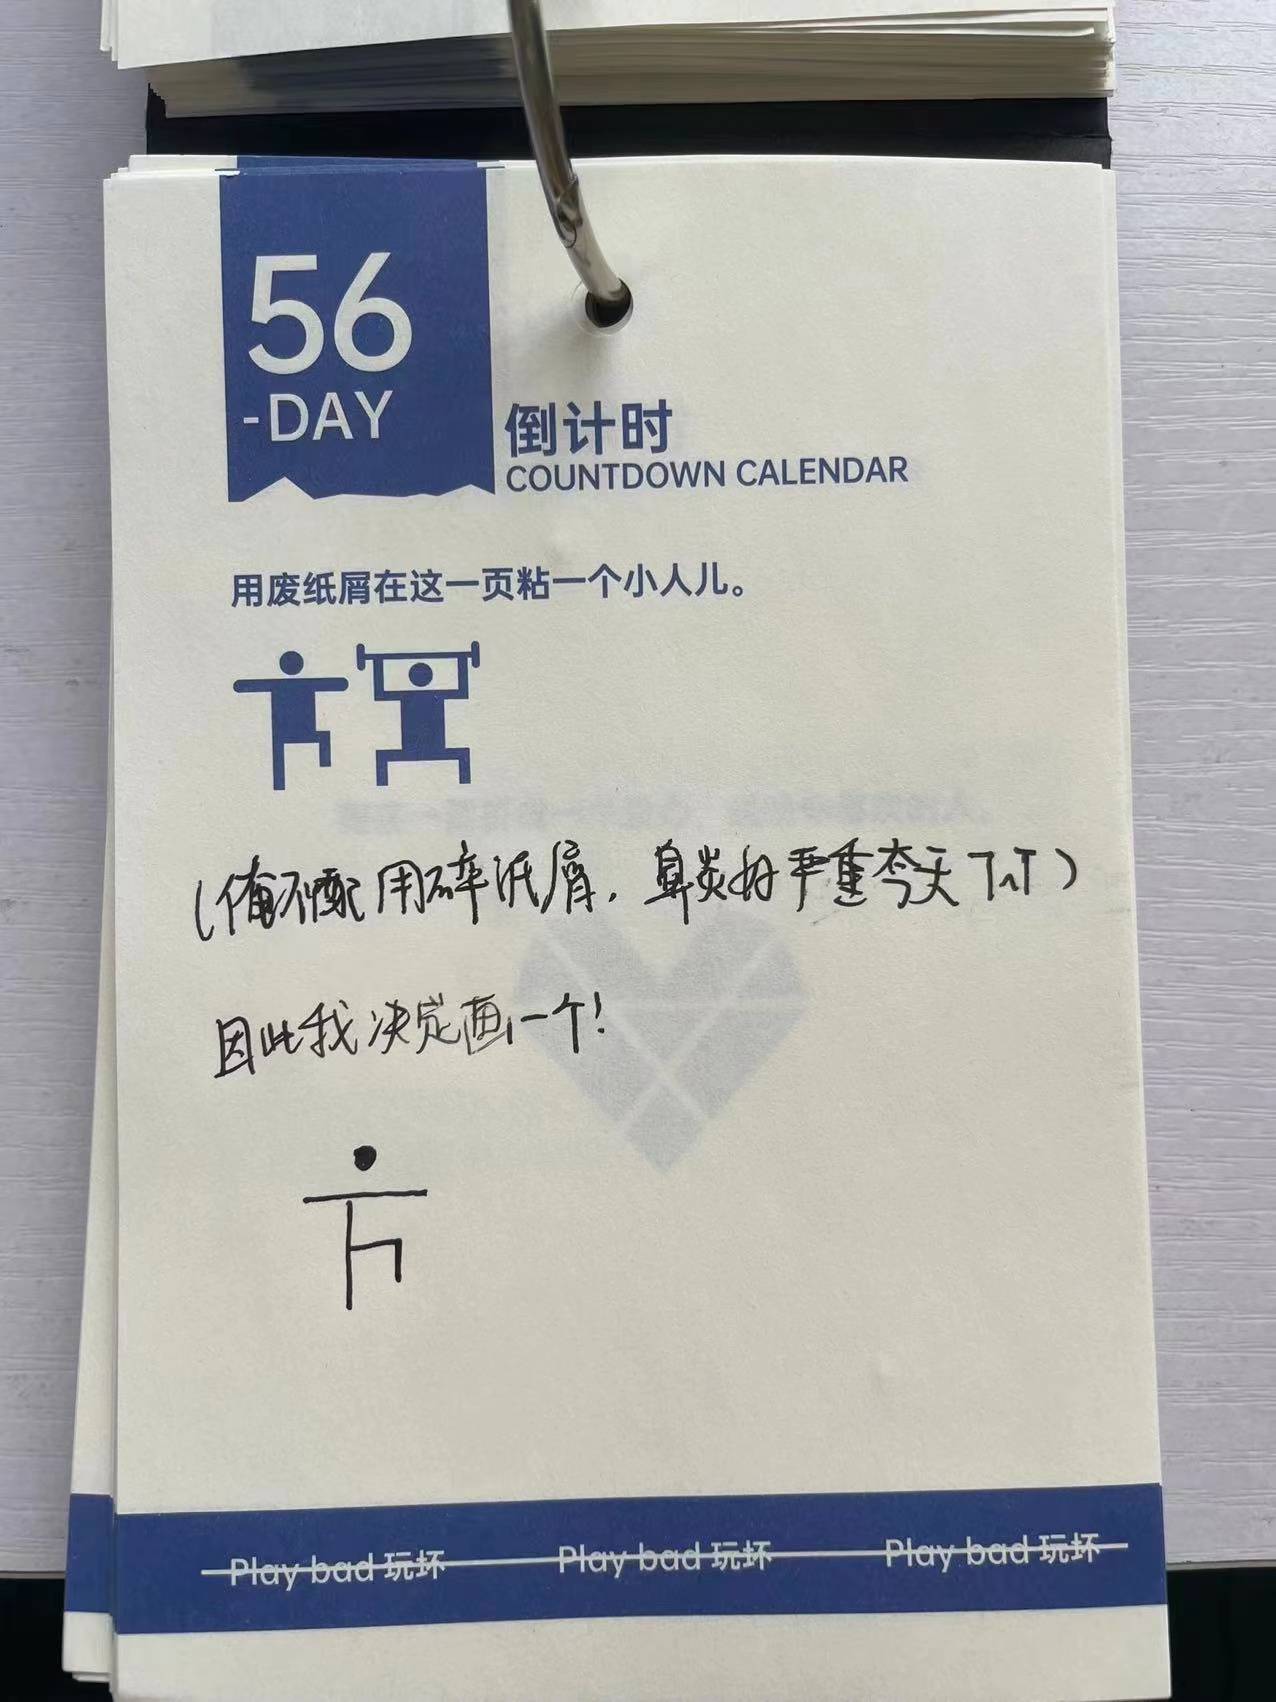 56
-DAY
倒计时
COUNTDOWN CALENDAR
用废纸屑在这一页粘一个小人儿。
(俺不配用碎纸屑，鼻炎好严重今天TnT)
因此我决定画一个！
Play bad 玩坏 Play bad 玩坏 Play bad 玩坏